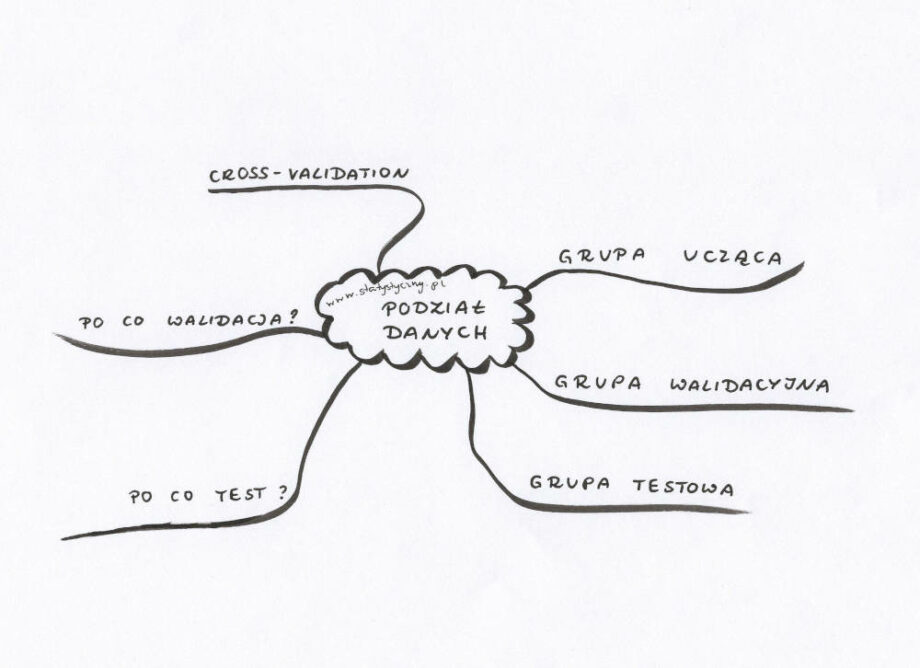 CROSS-VALIDATION
GRUPA UCZĄCA
www.statystyczny.pl
PODZIAŁ
DANYCH
PO CO WALIDACJA?
GRUPA WALIDACYJNA
GRUPA TESTOWA
PO CO TEST?